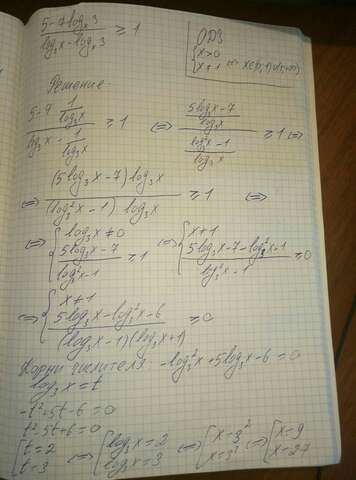 5-7log_x 3 / log_3 x - log_x 3 ≥ 1
ОДЗ
{ x>0
x≠1 <=> x∈(0,1)∪(1,+∞)
Решение
5-7 1/log_3 x / log_3 x - 1/log_3 x ≥ 1 <=> 5log_3 x - 7 / log_3 x / log_3^2 x - 1 / log_3 x ≥ 1 <=>
<=> (5log_3 x - 7) log_3 x / (log_3^2 x - 1) log_3 x ≥ 1 <=>
<=> { log_3 x ≠ 0
5log_3 x - 7 / log_3^2 x - 1 ≥ 1 <=> { x≠1
5log_3 x - 7 - log_3^2 x + 1 / log_3^2 x - 1 ≥ 0
<=> { x≠1
5log_3 x - log_3^2 x - 6 / (log_3 x - 1)(log_3 x + 1) ≥ 0
Корни числителя: -log_3^2 x + 5log_3 x - 6 = 0
log_3 x = t
-t²+5t-6=0
t²-5t+6=0
[ t=2
t=3 <=> [ log_3 x = 2
log_3 x = 3 <=> [ x=3²
x=3³ <=> [ x=9
x=27